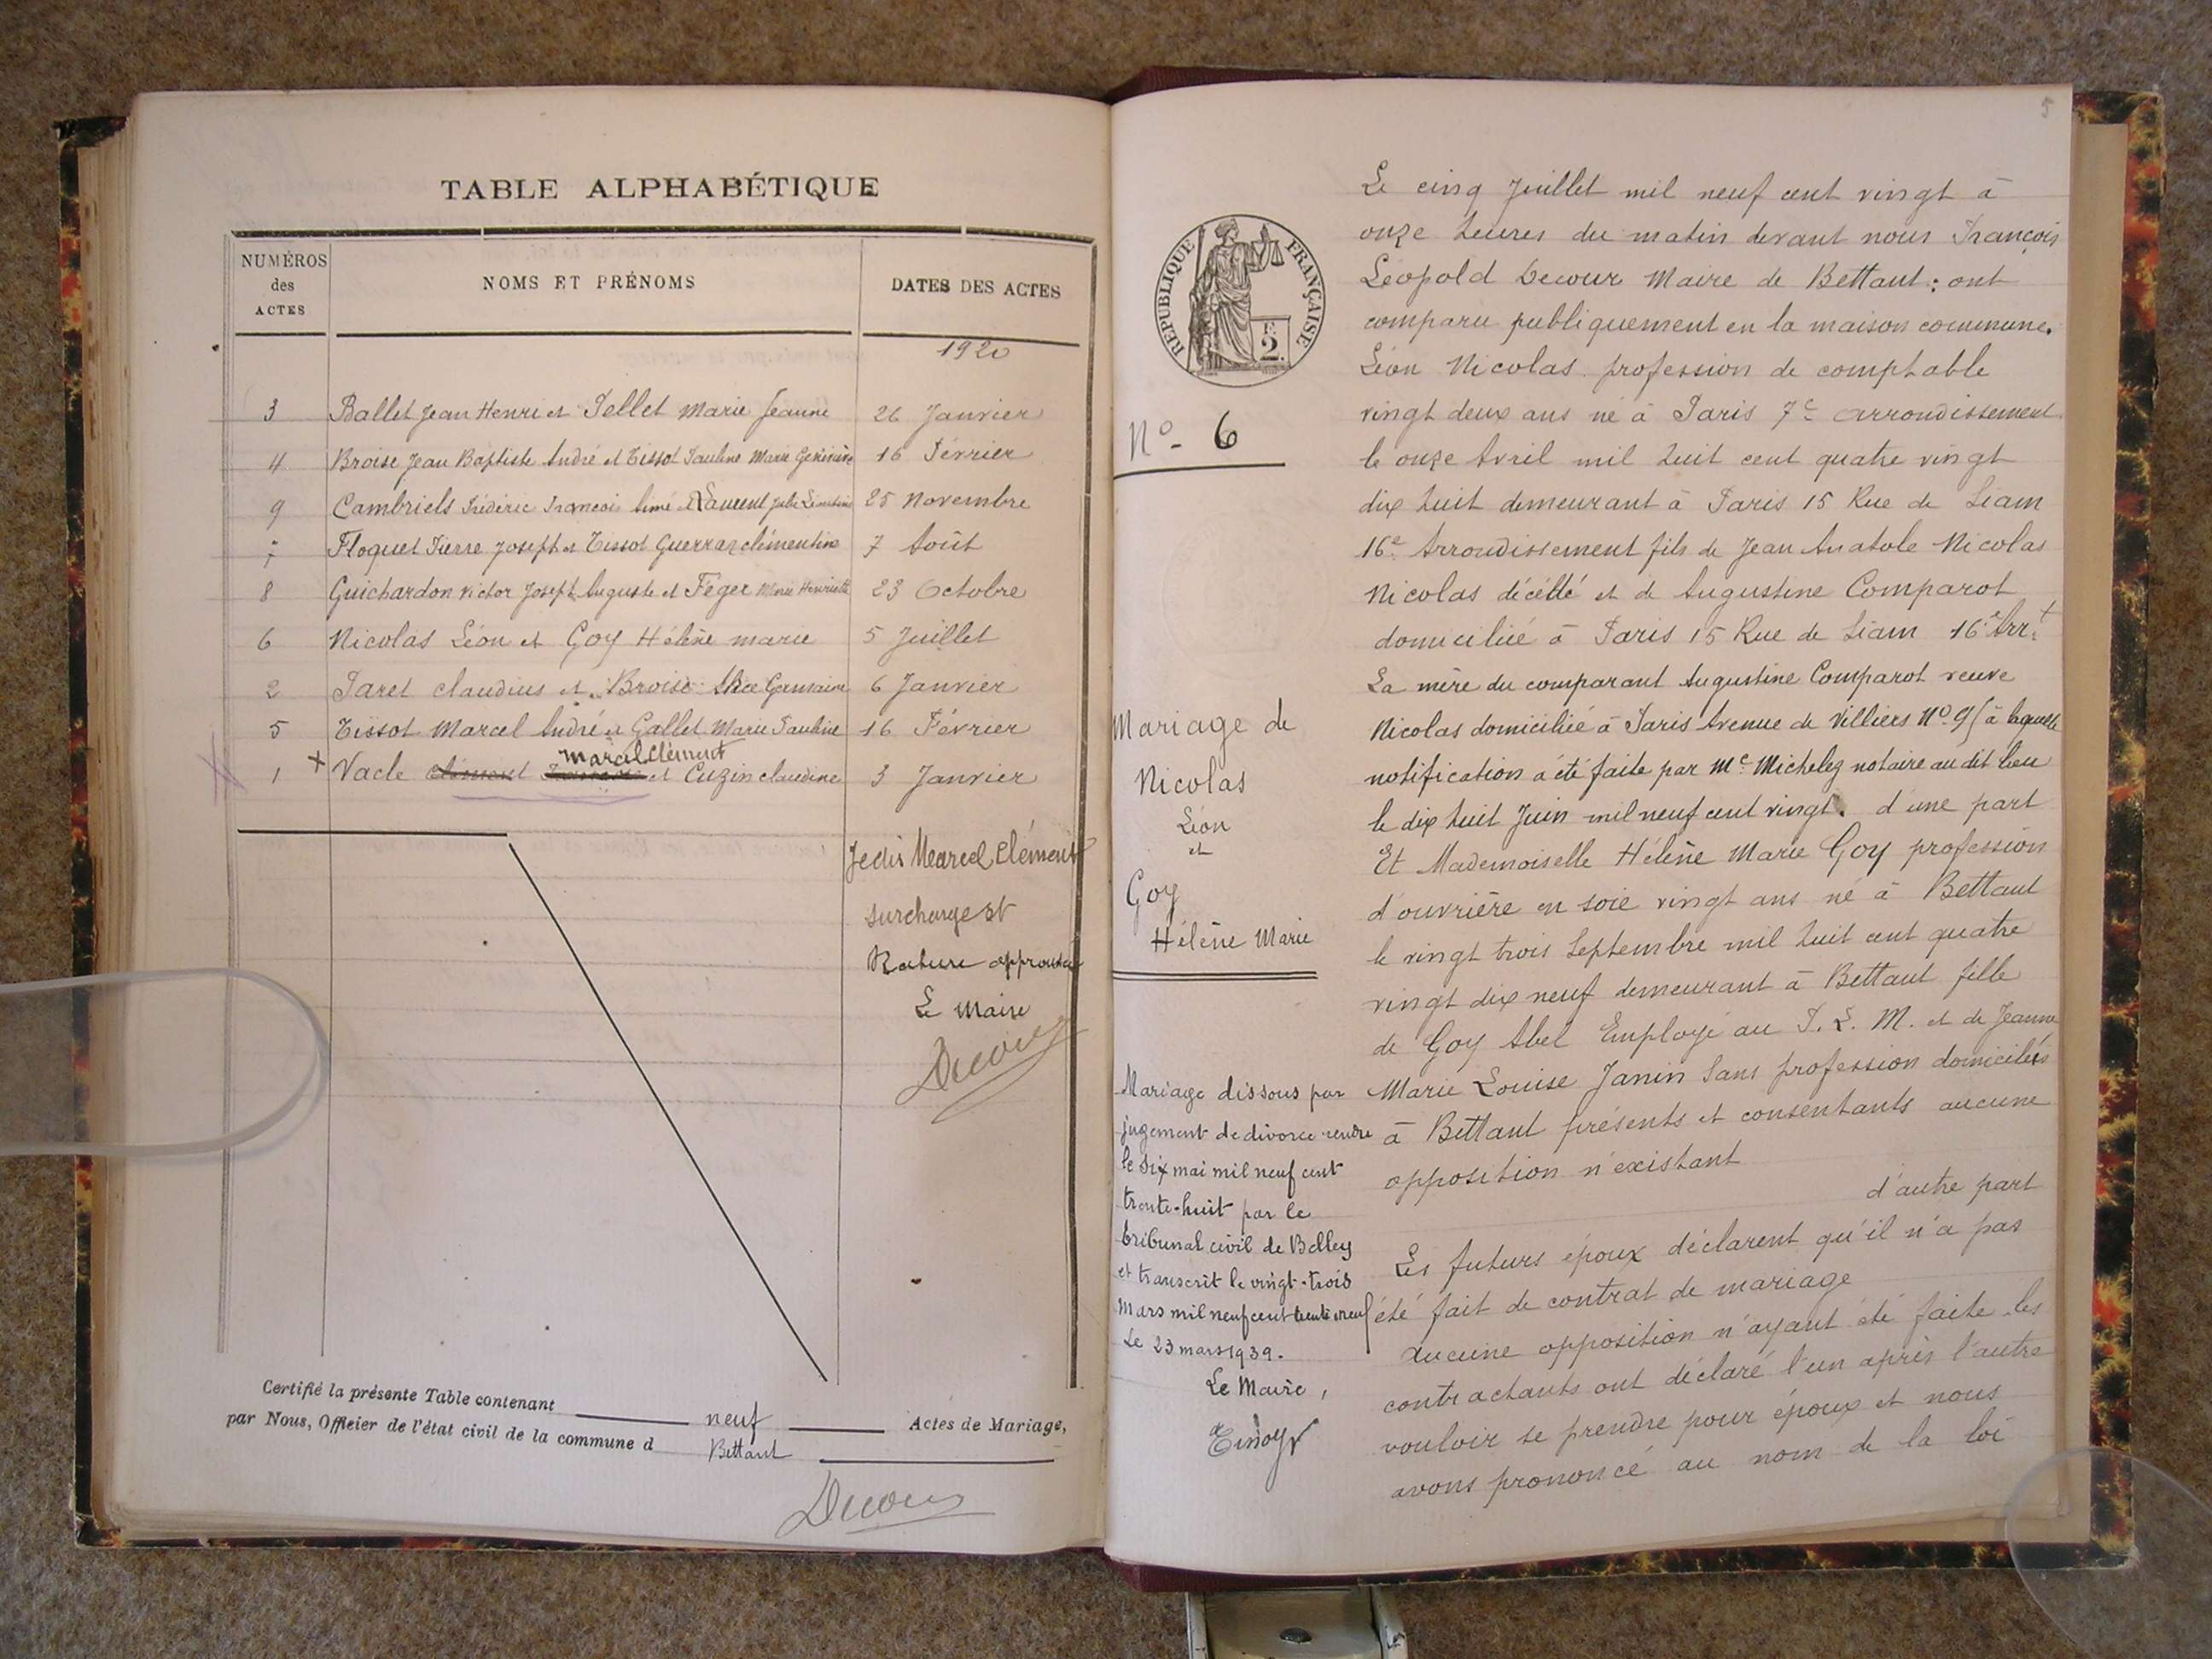 TABLE ALPHABÉTIQUE
NUMÉROS des ACTES
NOMS ET PRÉNOMS
DATES DES ACTES
1920
3 Ballet Jean Henri et Pellet Marie Jeanne 26 Janvier
4 Broise Jean Baptiste André et Tissot Pauline Marie Geneviève 16 Février
9 Cambriels Frédéric François Aimé et Laurent Julie Léontine 25 Novembre
7 Floquet Pierre Joseph et Tissot Guerraz Clémentine 7 Août
8 Guichardon Victor Joseph Auguste et Féger Marie Henriette 23 Octobre
6 Nicolas Léon et Goy Hélène Marie 5 Juillet
2 Paret Claudius et Broise Alice Germaine 6 Janvier
5 Tissot Marcel André et Gallet Marie Pauline 16 Février
Marcel Clément
1 + Vacle Clément et Cuzin Claudine 3 Janvier
Je dis Marcel Clément
surcharge et
Rature approuvée
Le Maire
Decour
Certifié la présente Table contenant neuf Actes de Mariage,
par Nous, Officier de l'état civil de la commune d Bettant
Decour
5
RÉPUBLIQUE FRANÇAISE
2 F.
No- 6
Mariage de
Nicolas
Léon
et
Goy
Hélène Marie
Mariage dissous par
jugement de divorce rendu
le six mai mil neuf cent
trente-huit par le
tribunal civil de Belley
et transcrit le vingt-trois
Mars mil neuf cent trente neuf
Le 23 mars 1939.
Le Maire,
Le cinq Juillet mil neuf cent vingt à
onze heures du matin devant nous François
Léopold Decour Maire de Bettant; ont
comparu publiquement en la maison commune.
Léon Nicolas profession de comptable
vingt deux ans né à Paris 7e arrondissement
le onze Avril mil huit cent quatre vingt
dix huit demeurant à Paris 15 Rue de Siam
16e Arrondissement fils de Jean Anatole Nicolas
Nicolas décédé et de Augustine Comparot
domiciliée à Paris 15 Rue de Siam 16e Arrt
La mère du comparant Augustine Comparot veuve
Nicolas domiciliée à Paris Avenue de Villiers No 9 (à laquelle
notification a été faite par Me Michelez notaire au dit lieu
le dix huit Juin mil neuf cent vingt. d'une part
Et Mademoiselle Hélène Marie Goy profession
d'ouvrière en soie vingt ans né à Bettant
le vingt trois Septembre mil huit cent quatre
vingt dix neuf demeurant à Bettant fille
de Goy Abel Employé au P. L. M. et de Jeanne
Marie Louise Janin Sans profession domiciliés
à Bettant présents et consentants aucune
opposition n'existant
d'autre part
Les futurs époux déclarent qu'il n'a pas
été fait de contrat de mariage
Aucune opposition n'ayant été faite les
contractants ont déclaré l'un après l'autre
vouloir se prendre pour époux et nous
avons prononcé au nom de la loi